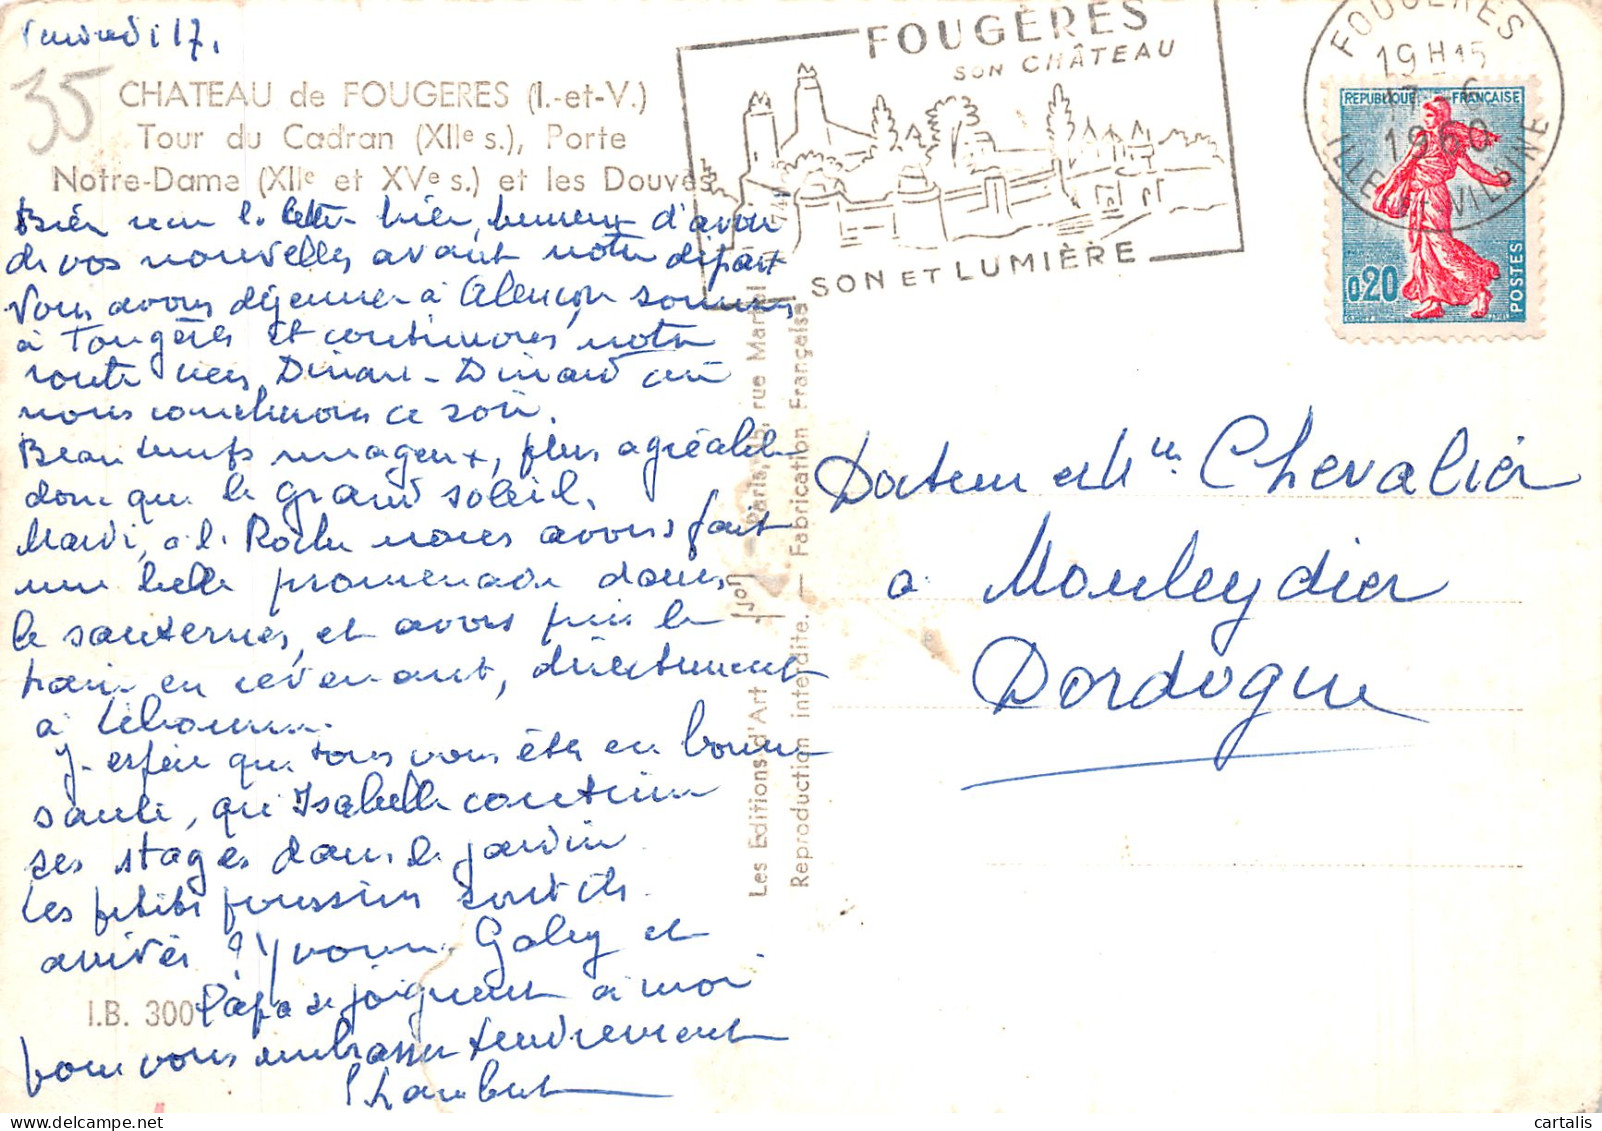 Vendredi 17,
35
CHATEAU de FOUGERES (I.-et-V.)
Tour du Cadran (XIIe s.), Porte
Notre-Dame (XIIe et XVe s.) et les Douves
Bien reçu la lettre hier, heureux d'avoir
de vos nouvelles avant notre départ
Nous avons déjeuner à Alençon, sommes
à Fougères et continuons notre
route vers Dinan - Dinard où
nous coucherons ce soir.
Beau temps nuageux, plus agréable
donc que le grand soleil.
Mardi, à la Roche nous avons fait
une belle promenade dans
le sauternes, et avons pris le
train en revenant, directement
à Libourne.
J'espère que tous vous êtes en bonne
santé, que Isabelle continue
ses stages dans le jardin
Les petits poussins sont ils
arrivés ? Yvonne, Galey et
Papa se joignent à moi
pour vous embrasser tendrement
I.B. 300
FOUGÈRES
SON CHÂTEAU
SON ET LUMIÈRE
FOUGERES
19H15
17-6
1960
ILLE ET VILAINE
REPUBLIQUE FRANÇAISE
0,20
POSTES
Les Editions d'Art Jack - Paris, 15, rue Martel
Reproduction interdite. — Fabrication Française
Docteur et Mme Chevalier
à Mouleydier
Dordogne
cartalis